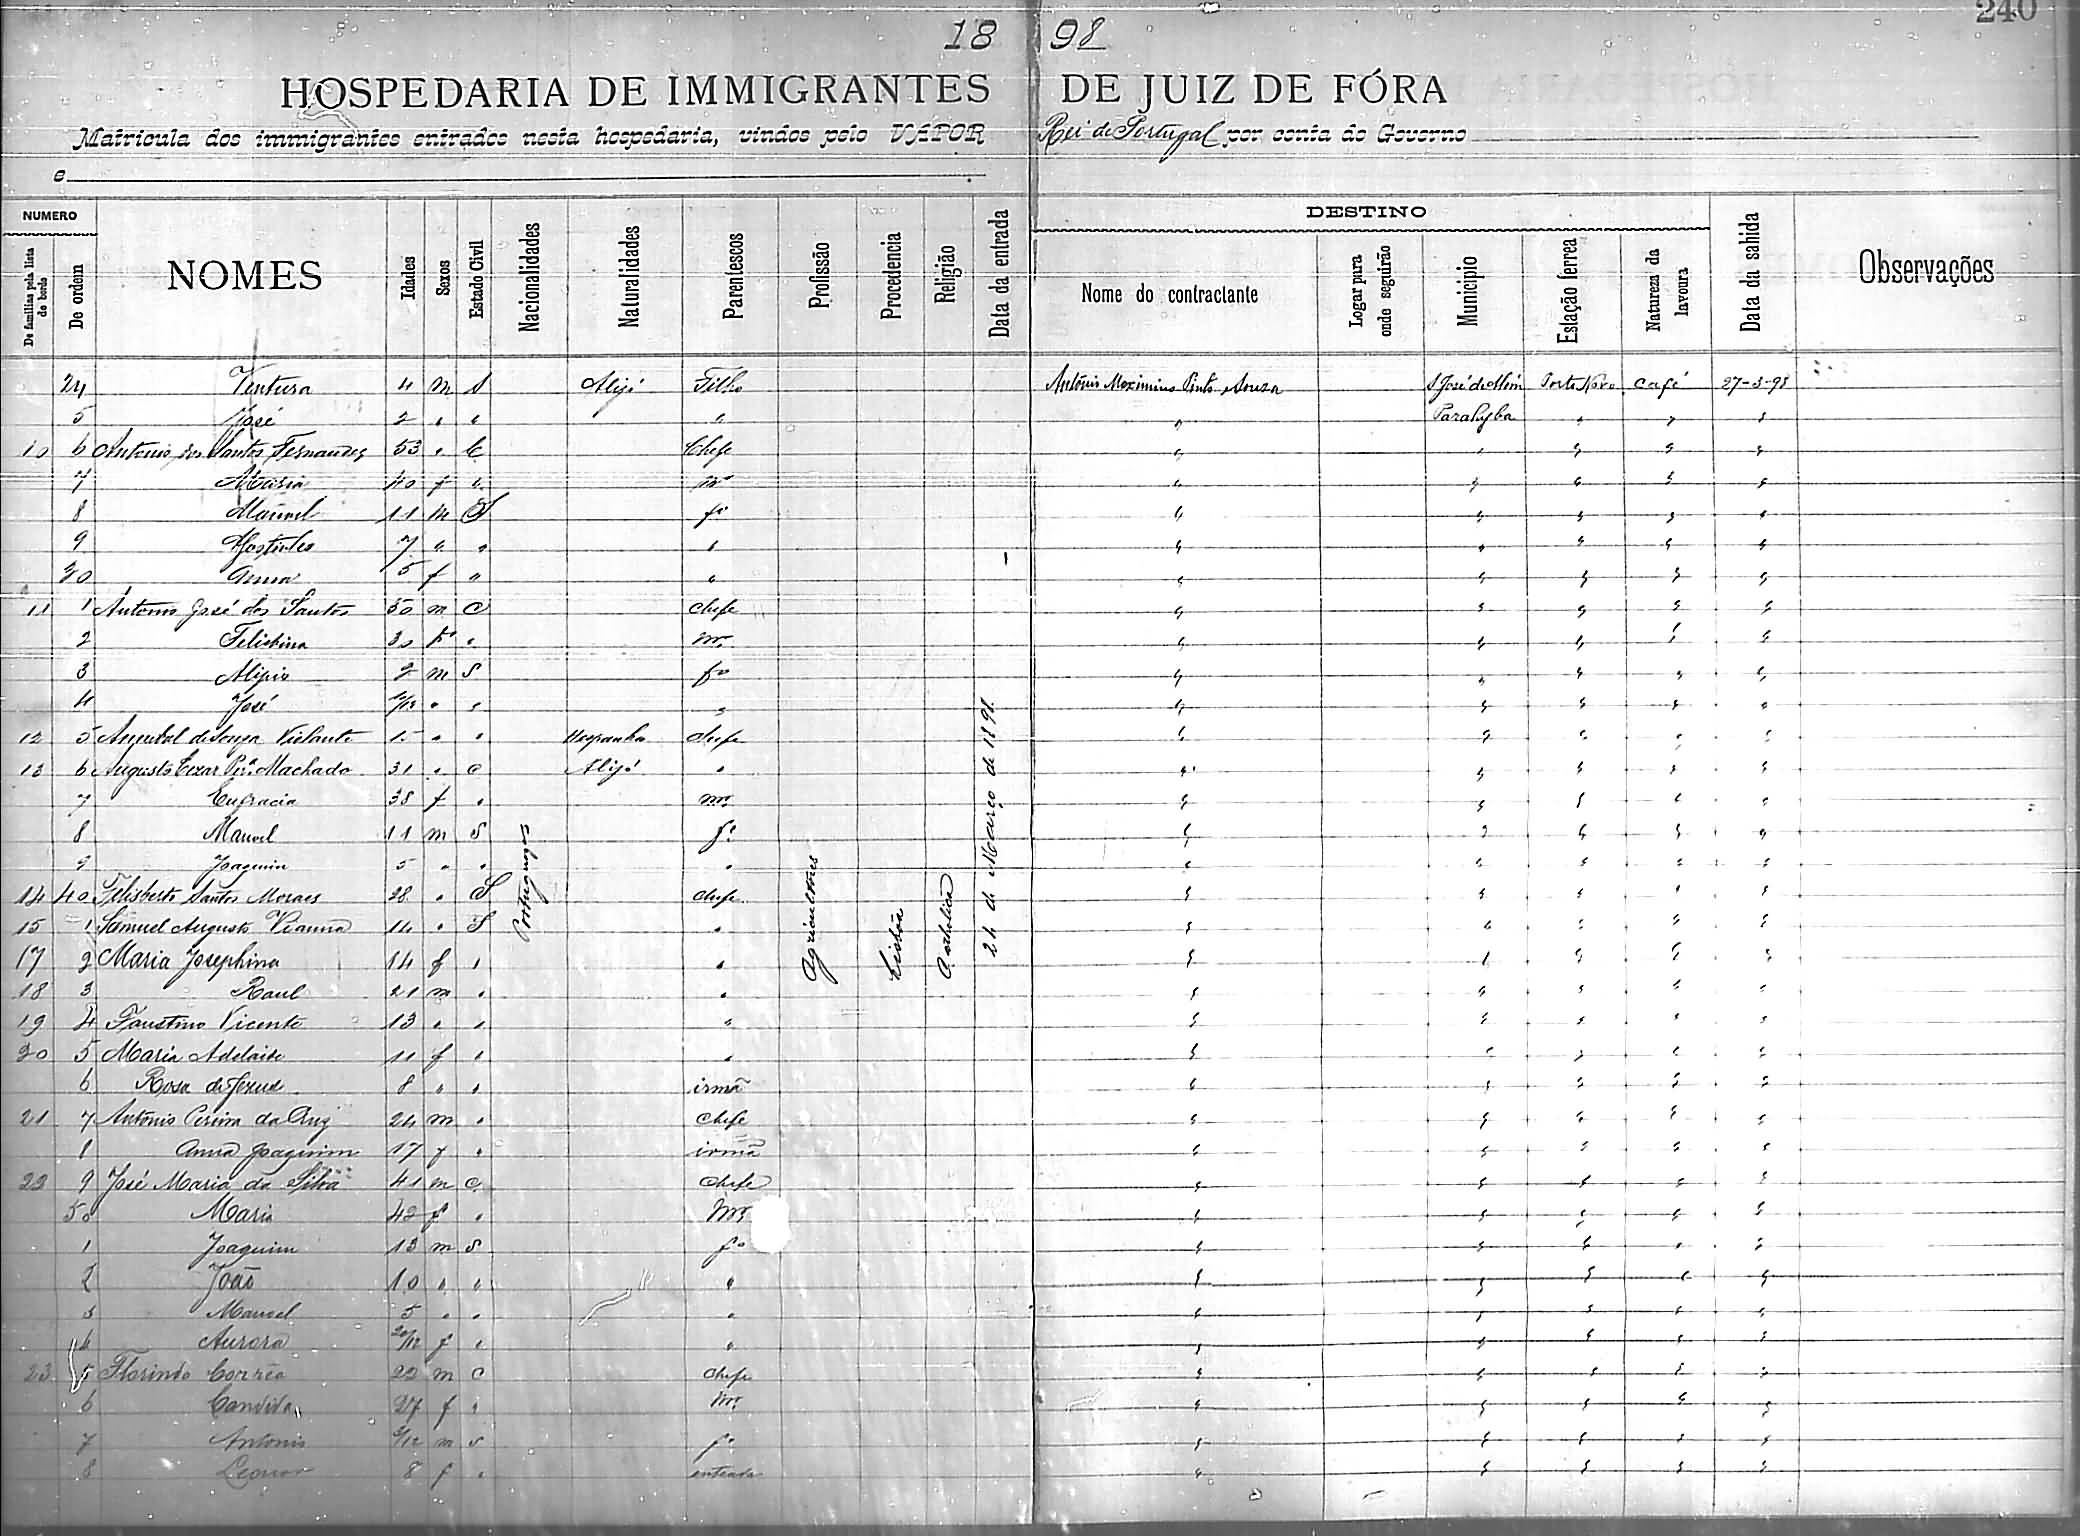 240
18 98
HOSPEDARIA DE IMMIGRANTES DE JUIZ DE FÓRA
Matricula dos immigrantes entrados nesta hospedaria, vindos pelo VAPOR Rei de Portugal por conta do Governo
e
NUMERO DESTINO
De familias pela lista de bordo De ordem NOMES Idades Sexos Estado Civil Nacionalidades Naturalidades Parentescos Profissão Procedencia Religião Data da entrada Nome do contractante Logar para onde seguirão Municipio Estação ferrea Natureza da lavoura Data da sahida Observações
24 Ventura 4 m S Alijó Filho Antonio Maximino Pinto Souza S José de Além Porto Novo Café 27-3-98
5 José 2 " " " " Parahyba " " "
10 6 Antonio dos Santos Fernandes 53 " C Chefe " " " " "
7 Maria 40 f " mer " " " " "
8 Manoel 11 m S fo " " " " "
9 7 " " " " " " " "
30 Anna 5 f " " " " " " "
11 1 Antonio José dos Santos 50 m C Chefe " " " " "
2 30 f " mer " " " " "
3 Alipio 2 m S fo " " " " "
4 José " " " " " " " "
12 5 Annibal de Souza " " Hespanha Chefe " " " " "
13 6 Augusto Cezar Pra Machado 31 " C Alijó " " " " " "
7 Eugracia 38 f " mer " " " " "
8 Manoel 11 m S fo " " " " "
9 Joaquim 5 " " " " " " " "
14 40 Felisberto Santos Moraes 28 " S Chefe " " " " "
15 1 Samuel Augusto Vianna 14 " S " " " " " "
17 2 Maria Josephina 14 f " " " " " " "
18 3 Raul 21 m " " " " " " "
19 4 Faustino Vicente 13 " " " " " " " "
20 5 Maria Adelaide 11 f " " " " " " "
6 Rosa de Jezus 8 " " irmã " " " " "
21 7 Antonio Pereira da Cruz 24 m " Chefe " " " " "
8 Anna Joaquim 17 f " irmã " " " " "
22 9 José Maria da Silva 41 m C Chefe " " " " "
50 Maria 42 f " mer " " " " "
1 Joaquim 13 m S fo " " " " "
2 João 10 " " " " " " " "
3 Manoel 5 " " " " " " " "
4 Aurora f " " " " " " "
23 5 Florindo Corrêa 22 m C Chefe " " " " "
6 Candida 27 f " mer " " " " "
7 Antonio m S fo " " " " "
8 Leonor 8 f " enteada " " " " "
Portuguezes
Agricultores
Lisbôa
Catholica
24 de Março de 1898